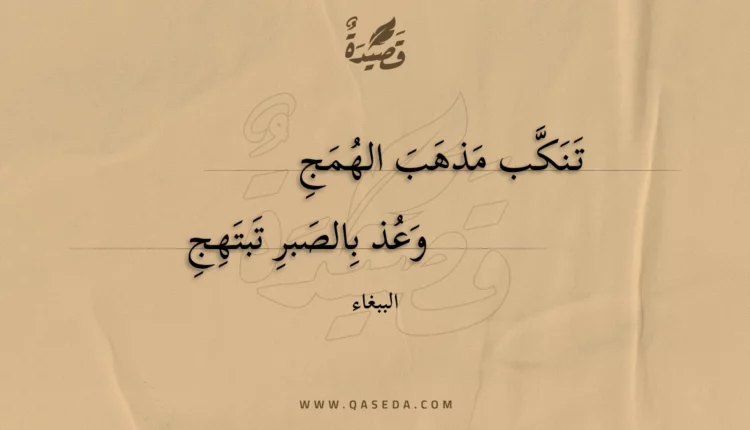 قَصِيدَةٌ
تَنَكَّب مَذهَبَ الهُمَجِ
وَعُذ بِالصَبرِ تَبتَهِجِ
الببغاء
WWW.QASEDA.COM